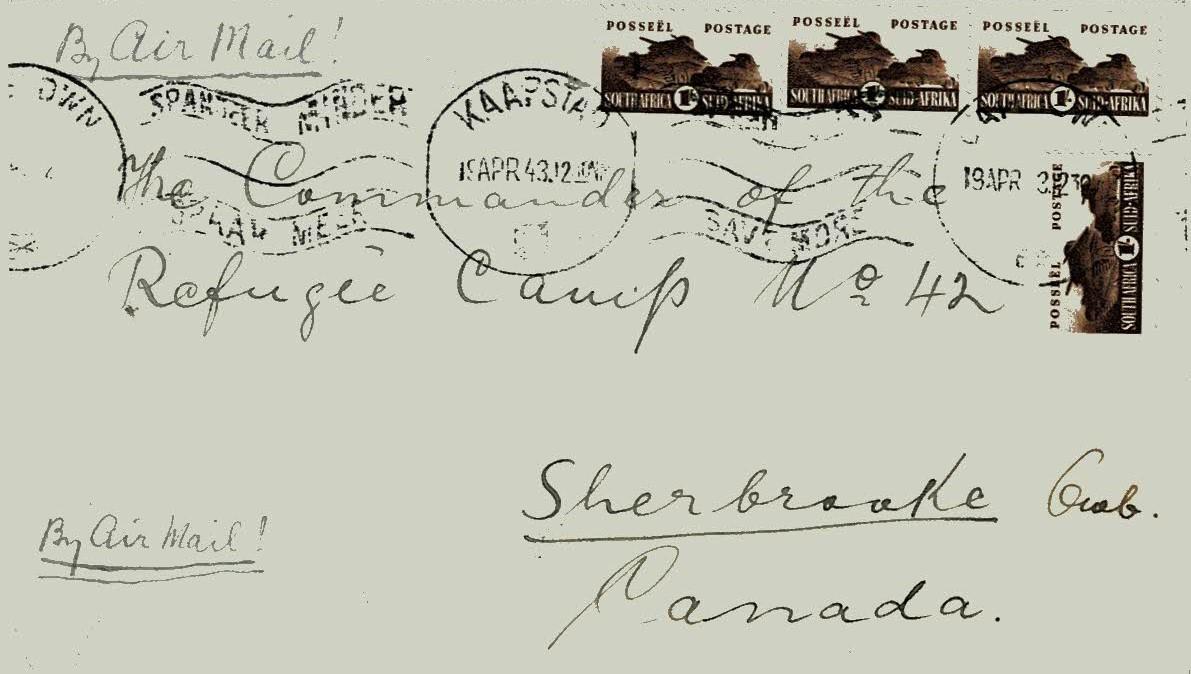 By Air Mail!
POSSEËL POSTAGE
SOUTH AFRICA 1/- SUID-AFRIKA
POSSEËL POSTAGE
SOUTH AFRICA 1/- SUID-AFRIKA
POSSEËL POSTAGE
SOUTH AFRICA 1/- SUID-AFRIKA
POSSEËL POSTAGE
SOUTH AFRICA 1/- SUID-AFRIKA
OWN
MINDER
KAAPSTA
APR 43.12
SPAAR MEER
SAVE MORE
19 APR
The Commander of the
Refugee Camp No 42
Sherbrooke Queb.
Canada.
By Air Mail!